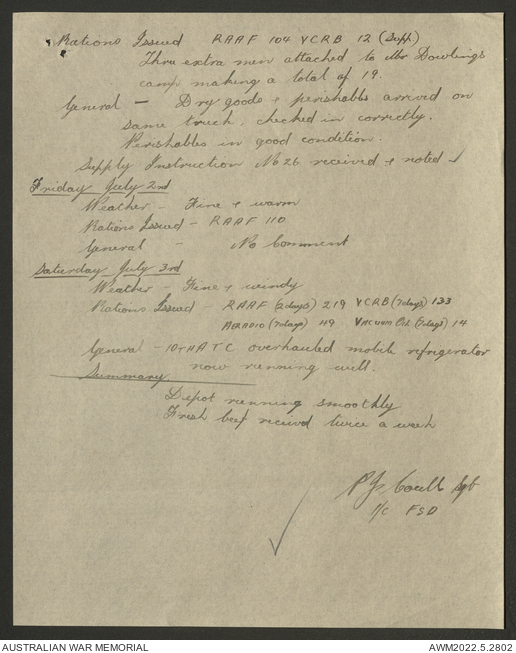 Rations Issued RAAF 104 VCRB 12 (Supp)
Thre extra men attached to Mr Dowlings
camp making a total of 19.
General - Dry goods & perishables arrived on
same truck, checked in correctly.
Perishables in good condition.
Supply Instruction No 26 received & noted
Friday July 2nd
Weather - Fine & warm
Rations Issued - RAAF 110
General - No Comment
Saturday July 3rd
Weather - Fine & windy
Rations Issued - RAAF (2 days) 219 VCRB (7 days) 133
AERADIO (7 days) 49 Vacuum Oil (7 days) 14
General - 10 AATC overhauled mobile refrigerator
now running well.
Summary
Depot running smoothly
Fresh beef received twice a week
Sgt
I/C FSD
AUSTRALIAN WAR MEMORIAL
AWM2022.5.2802